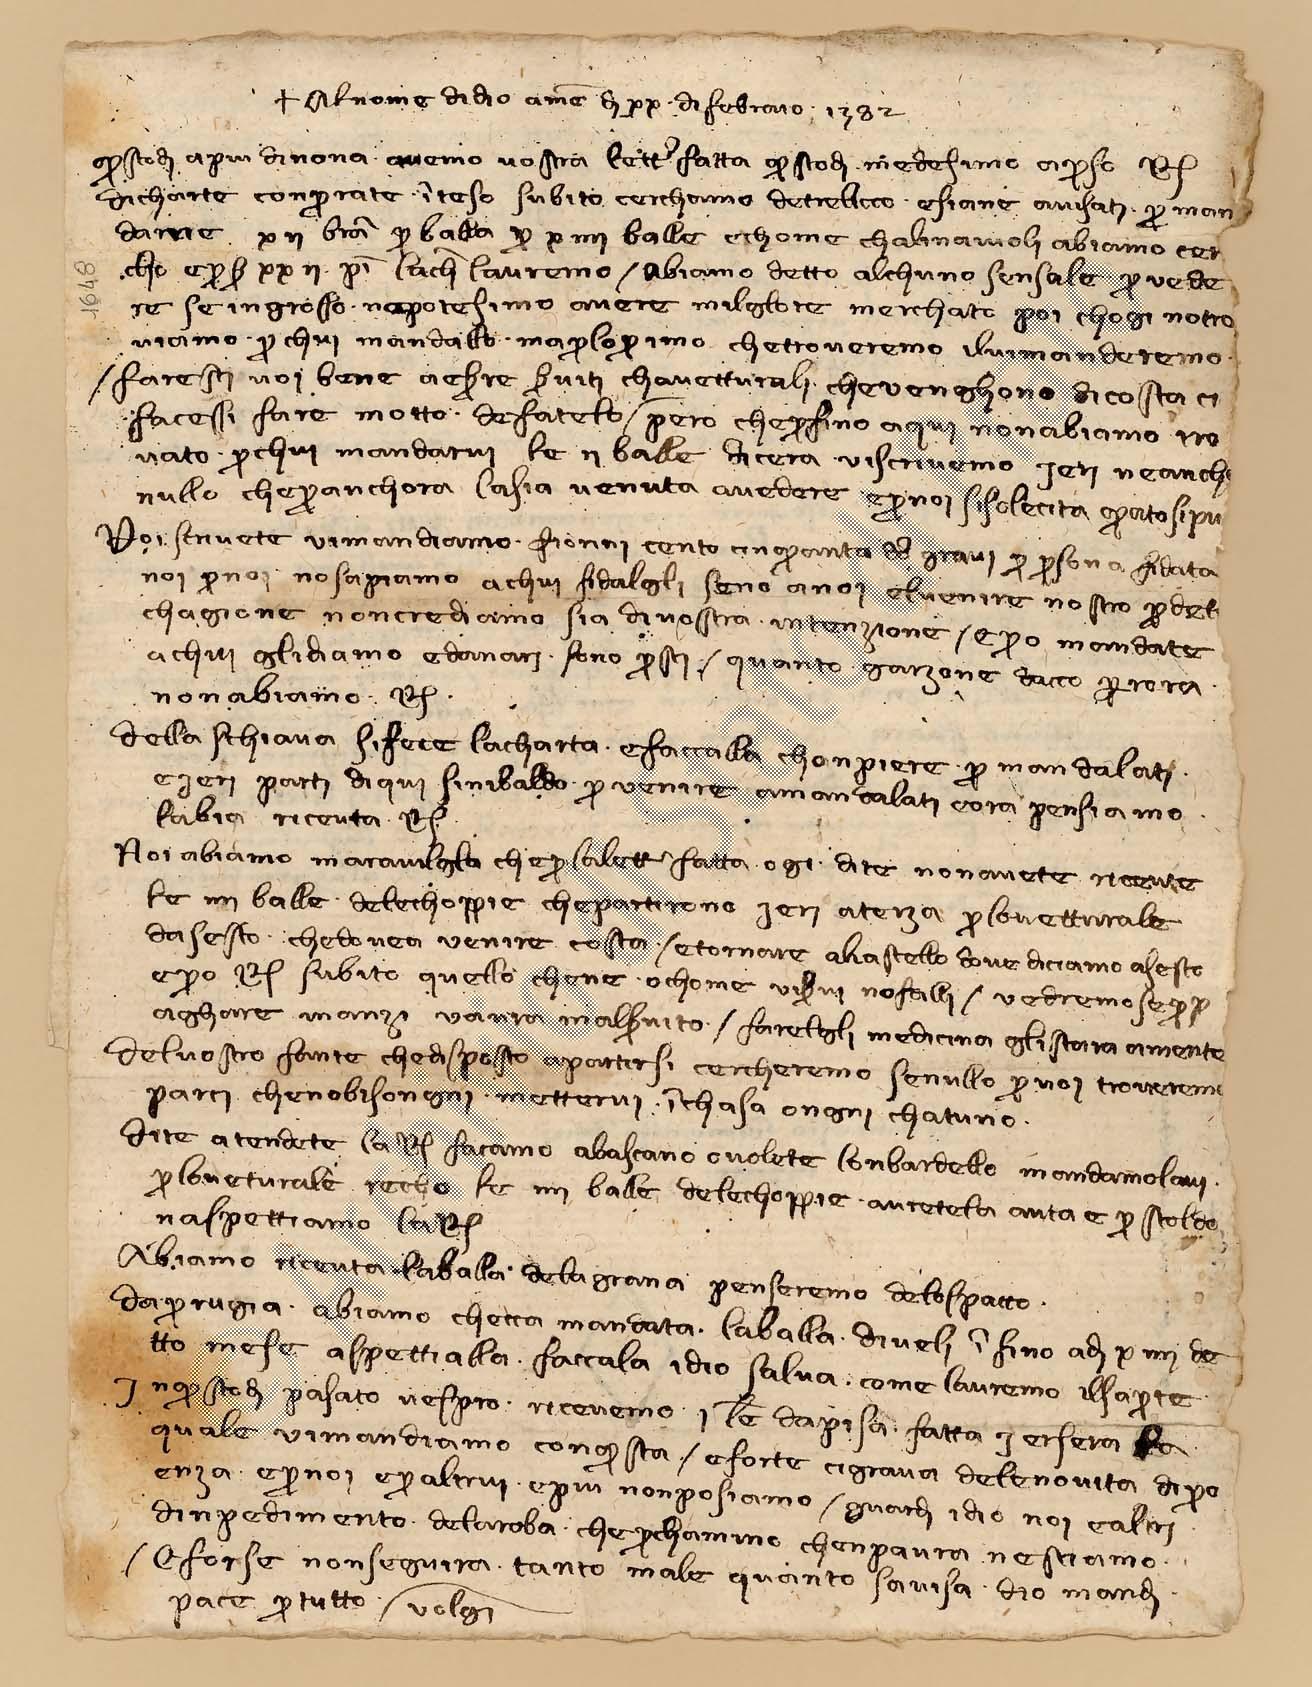 + Al nome di dio amē dì xx di febraio 1382
questo dì a piu di nona avemo vostra lettᵃ fatta questo dì medesimo apreso R
di charte conprate īteso subito cerchamo detrebicco e siane avisati per man
darne xii braī per balla per xiiii balle e chome chalinaiuoli abiamo cer
cho e per xxii pī lachē lauremo / Abiamo detto alchuno sensale per vede
re se in grosso ne potesimo avere milglore merchato poi ch ogi no tro
viamo per chui mandallo ma per lo primo che troveremo il vi manderemo
/ faresti voi bene a essere serviti cha vetturali che venghono di costa ci
facessi fare motto de fatelo / pero che perfino a qui non abiamo tro
vato per chui mandarvi le ii balle di cera vi scrivemo ieri ne anche
nullo che per anchora la sia venuta a vedere e per noi si solecita quanto si pu
Voi scrivete vi mandiamo fiorini cento cinquanta d gravi per persona fidata
noi per noi no sapiamo a chui fidalgli seno a noi el venire nostro per deta
chagione non crediamo sia di vostra intenzione / e pero mandate
a chui gli diamo e danari sono presti / quanto garzone dacco per rora
non abiamo R
della schiava si fece la charta e faccalla chon piere per mandalati
e ieri parti di qui sinibaldo per venire a mandalati e ora pensiamo
l abia riceuta R
Noi abiamo maravilgla che per la lettᵃ fatta ogi dite non avete riceute
le iiii balle dele choppie che partirono ieri a terza per lo vetturale
da sesto che dovea venire costa / e tornare al chastello dove diciamo a sesto
e pero R subito quello che n e o chome vi servi no falli / vedremo se per p
aghare inanzi v avra mal servito / farelgli medicina gli stara a mente
del vostro fante ched isposto a partirsi cercheremo se nullo per voi troveremo
parci che no bisongni mettervi ī chasa ongni chatuno
Dite atendete la R facamo a bascano o volete lonbardello mandamolavi
per lo veturale recho le iiii balle dele choppie avretela auta e per stoldo
n aspettiamo la R
Abiamo riceuta la balla dela grana penseremo delo spacco
da perugia abiamo ch ecca mandata la balla di veli ī fino a dì xiiii de
tto mese aspettialla faccala idio salva come lauremo il saprete
In questo dì pasato vespro ricevemo i lē da pisa fatta iersera la
quale vi mandiamo con questa / e forte ci grava dele novita di po
enza e per noi e per altrui e piu non posiamo / guardi idio noi e altri
d inpedimento dela roba che per chamino che n paura ne stiamo
/ E forse non seguira tanto male quanto s avisa dio mandi
pace per tutto / volgi
1648